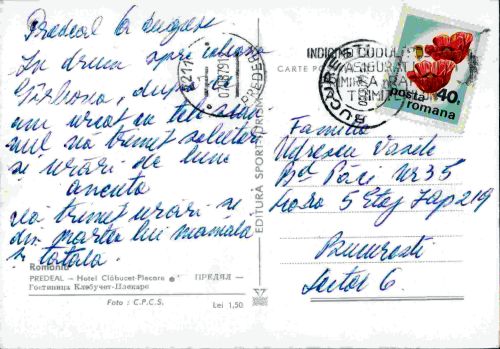 Predeal 6 august
In drum spre cabana
Gîrbova, după
am urcat cu tele
vă trimet salutări
și urări de bine
Ancuța
Vă trimet urări și
din partea lui mămăla
și tătăla.
România
PREDEAL — Hotel Clăbucet-Plecare • ПРЕДЯЛ —
Гостиница Клэбучет-Плекаре
Foto : C.P.C.S.
Lei 1,50
EDITURA SPORT-TURISM
CARTE
07.08.79
PREDEAL
INDICIND CODUL
ASIGURATI
TRIMITE
BUCURE
40B
posta
romana
Familia
Vasile
Bd Păcii Nr 35
5 Etaj Jap 219
București
Sector 6